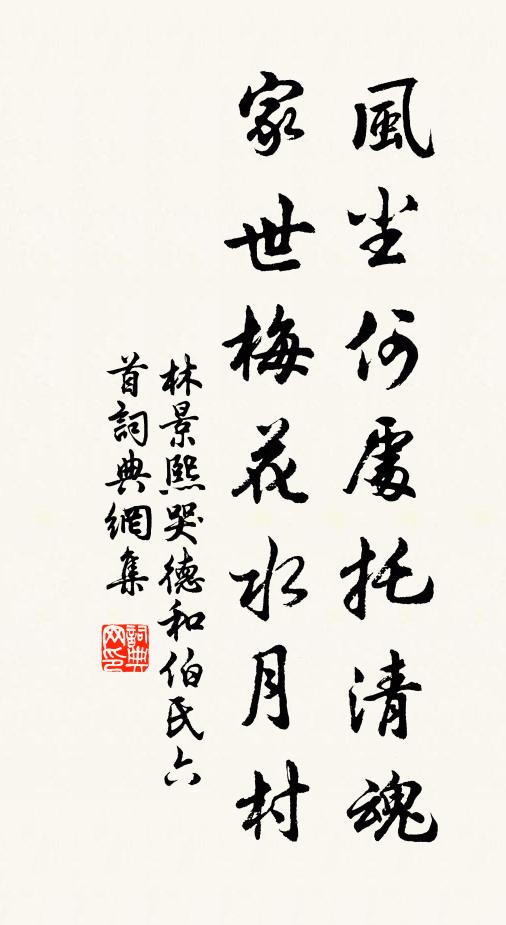 風尘何處托清魂
家世梅花水月村
林景熙哭德和伯氏六
首詞典網集
詞典网印